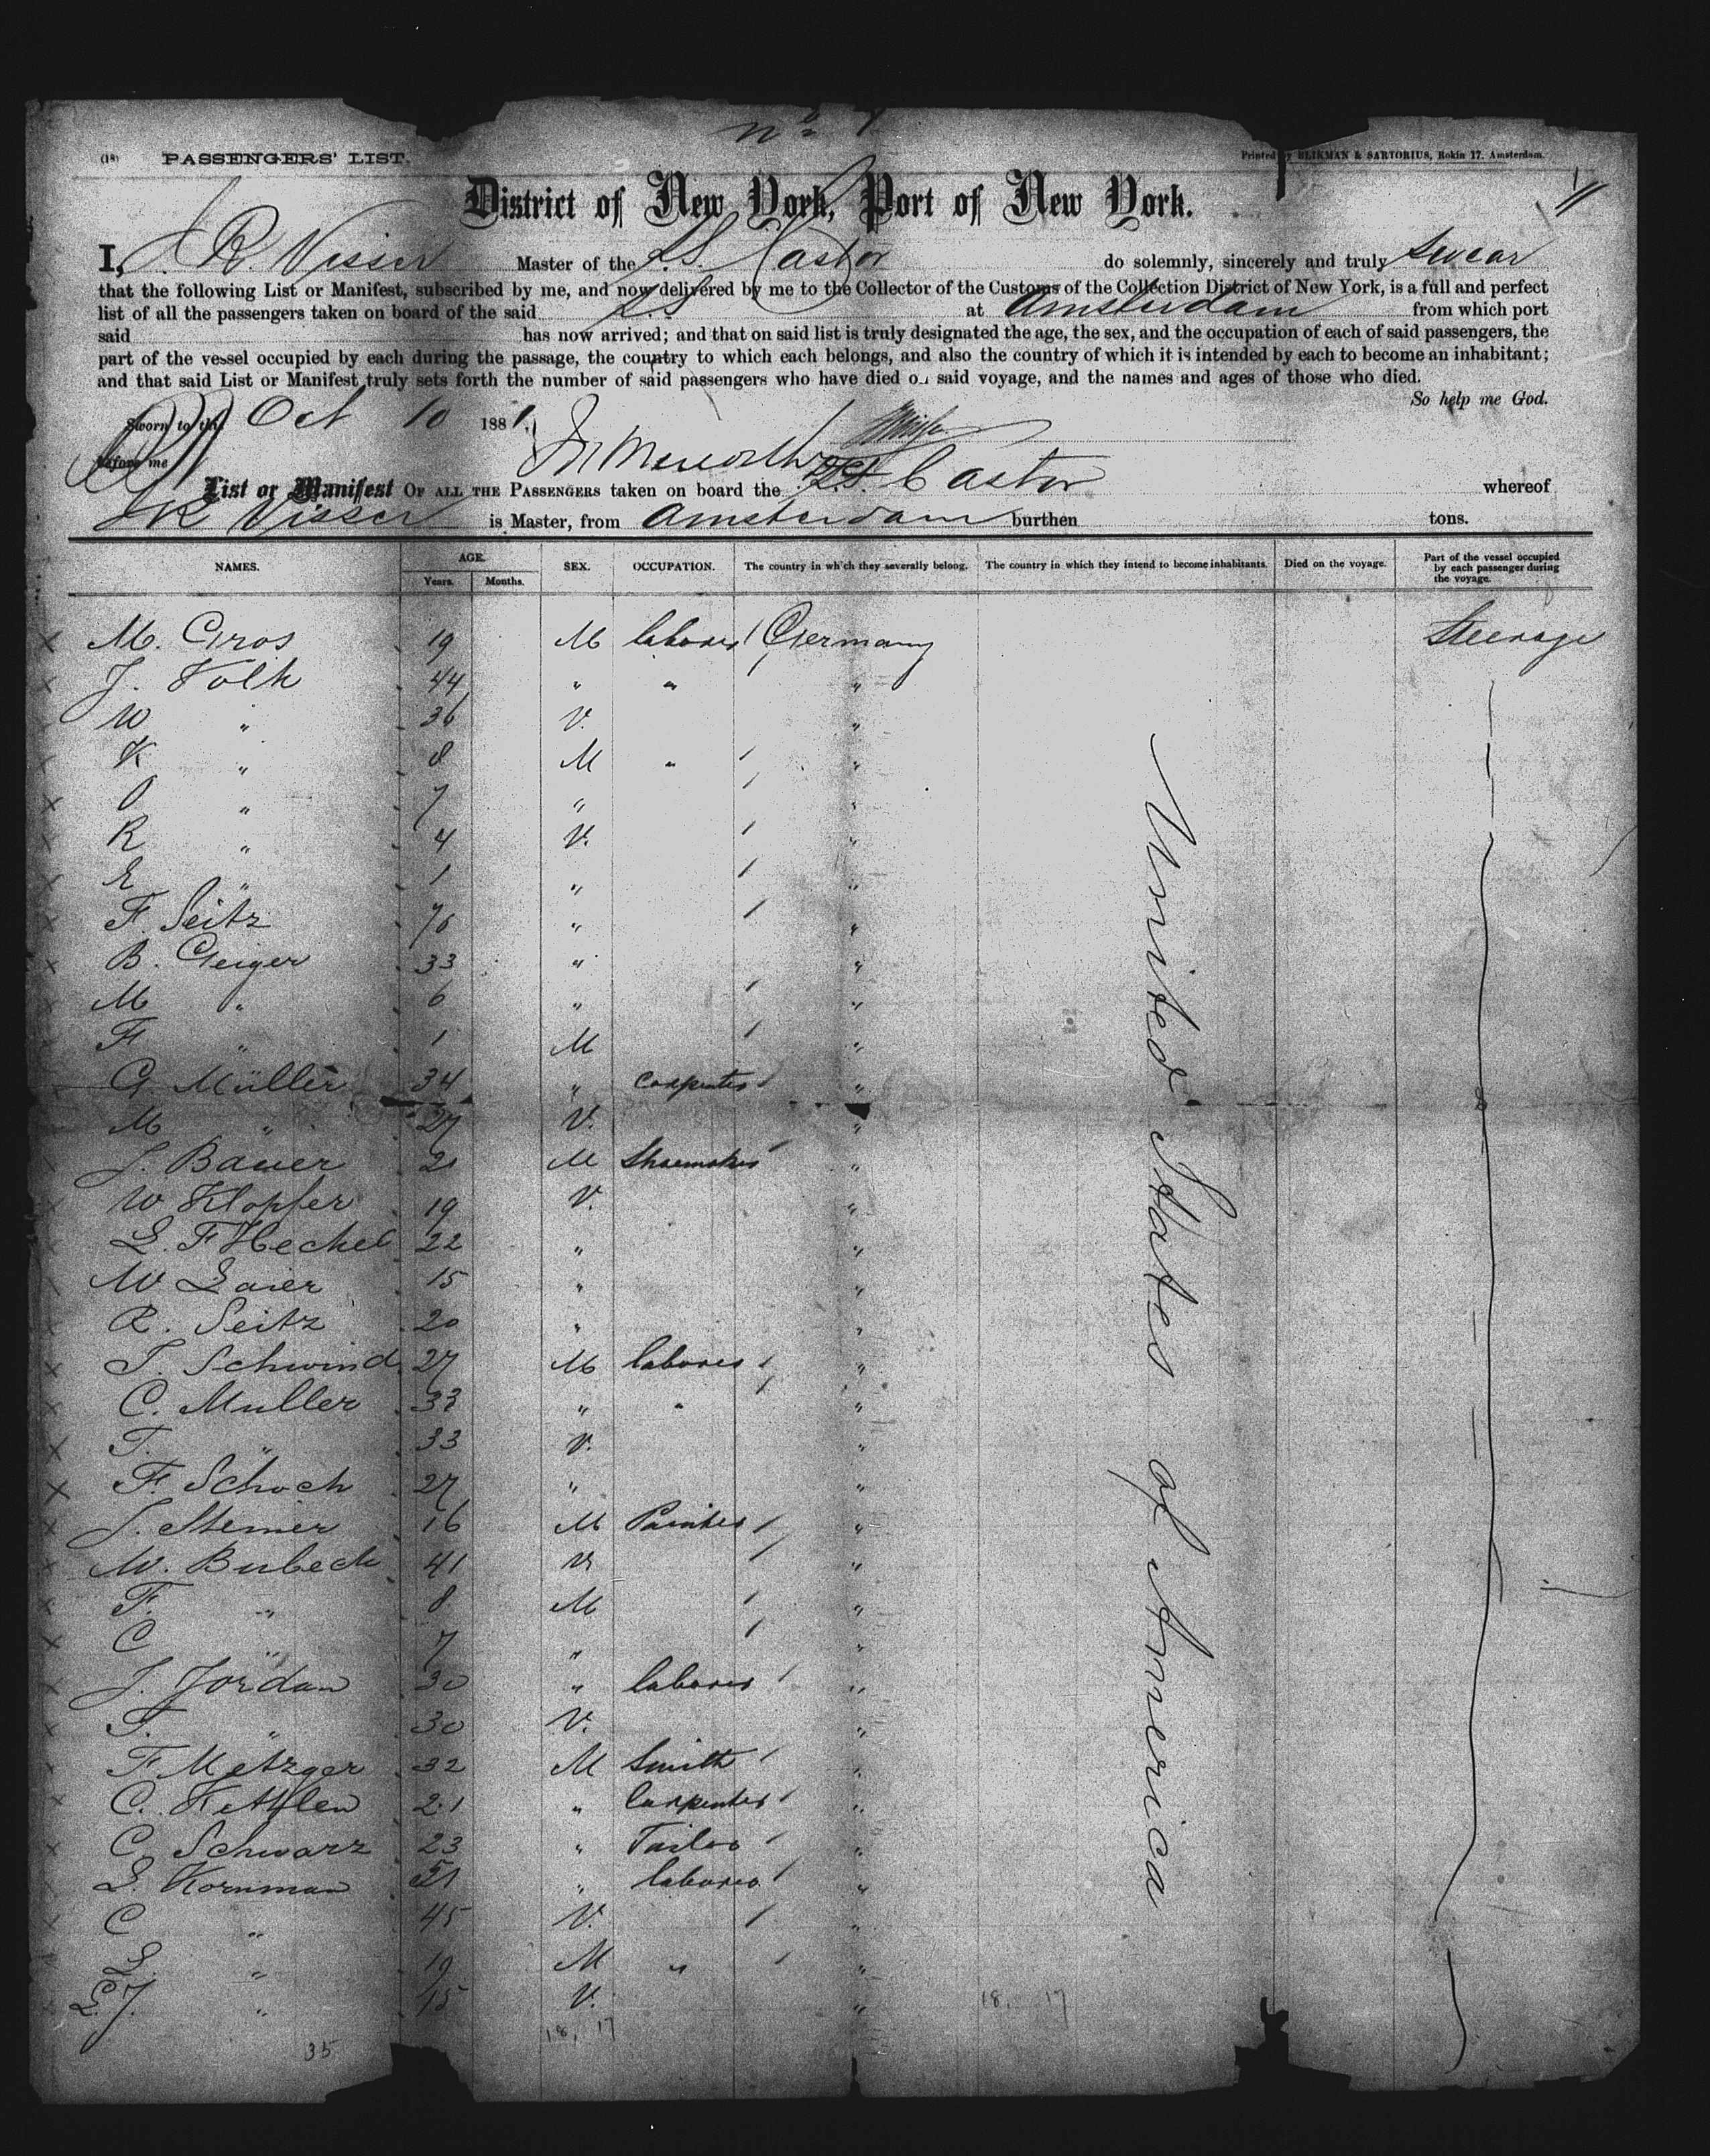 Nº
(18) PASSENGERS' LIST. Printed by BLIKMAN & SARTORIUS, Rokin 17. Amsterdam.
District of New York, Port of New York.
I, J. R. Visser Master of the S.S. Castor do solemnly, sincerely and truly swear
that the following List or Manifest, subscribed by me, and now delivered by me to the Collector of the Customs of the Collection District of New York, is a full and perfect
list of all the passengers taken on board of the said S.S. at Amsterdam from which port
said has now arrived; and that on said list is truly designated the age, the sex, and the occupation of each of said passengers, the
part of the vessel occupied by each during the passage, the country to which each belongs, and also the country of which it is intended by each to become an inhabitant;
and that said List or Manifest truly sets forth the number of said passengers who have died on said voyage, and the names and ages of those who died.
So help me God.
Sworn to this Oct 10 1881.
before me
List or Manifest OF ALL THE PASSENGERS taken on board the S.S. Castor whereof
J R Visser is Master, from Amsterdam burthen tons.
NAMES. AGE. Years. Months. SEX. OCCUPATION. The country in which they severally belong. The country in which they intend to become inhabitants. Died on the voyage. Part of the vessel occupied by each passenger during the voyage.
M. Gros 19 M laborer Germany Steerage
J. Volk 44 " " "
W " 36 V. "
K " 8 M " "
O " 7 " "
R " 4 V. "
E " 1 " "
F. Seitz 76 " "
B. Geiger 33 " "
M " 6 " "
F " 1 M "
G Müller 34 " carpenter "
M " 27 V. "
J. Bauer 21 M Shoemaker "
W Klopfer 19 V. "
L. F Heckel 22 " "
W Laier 15 " "
R. Seitz 20 " "
T. Schwind 27 M laborer "
C. Muller 33 " " "
T. " 33 V. "
F Schoch 27 " "
J. Steiner 16 M Painter "
W. Bubeck 41 V "
F. " 8 M "
C " 7 " "
J. Jordan 30 " laborer "
T. " 30 V. "
F Metzger 32 M Smith "
C. 21 " Carpenter "
C. Schwarz 23 " Tailor "
L. Kornman 51 " laborer "
C " 45 V. "
L " 19 M " "
L. J. " 15 V. "
United States of America
18, 17
18, 17
35